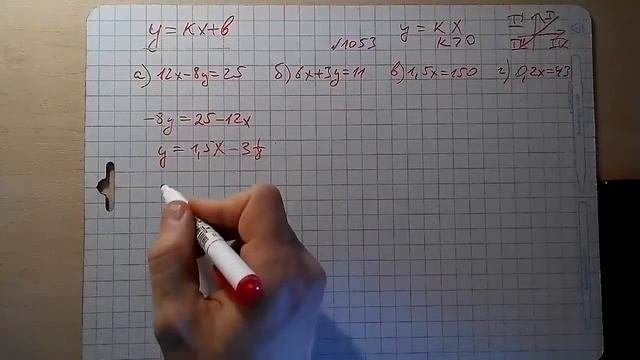 y = kx+b
y = k x
k>0
I
II
III
IV
№1053
а) 12x-8y=25 б) 6x+3y=11 в) 1,5x=150 г) 0,2x=43
-8y = 25-12x
y = 1,5x - 3 1/8